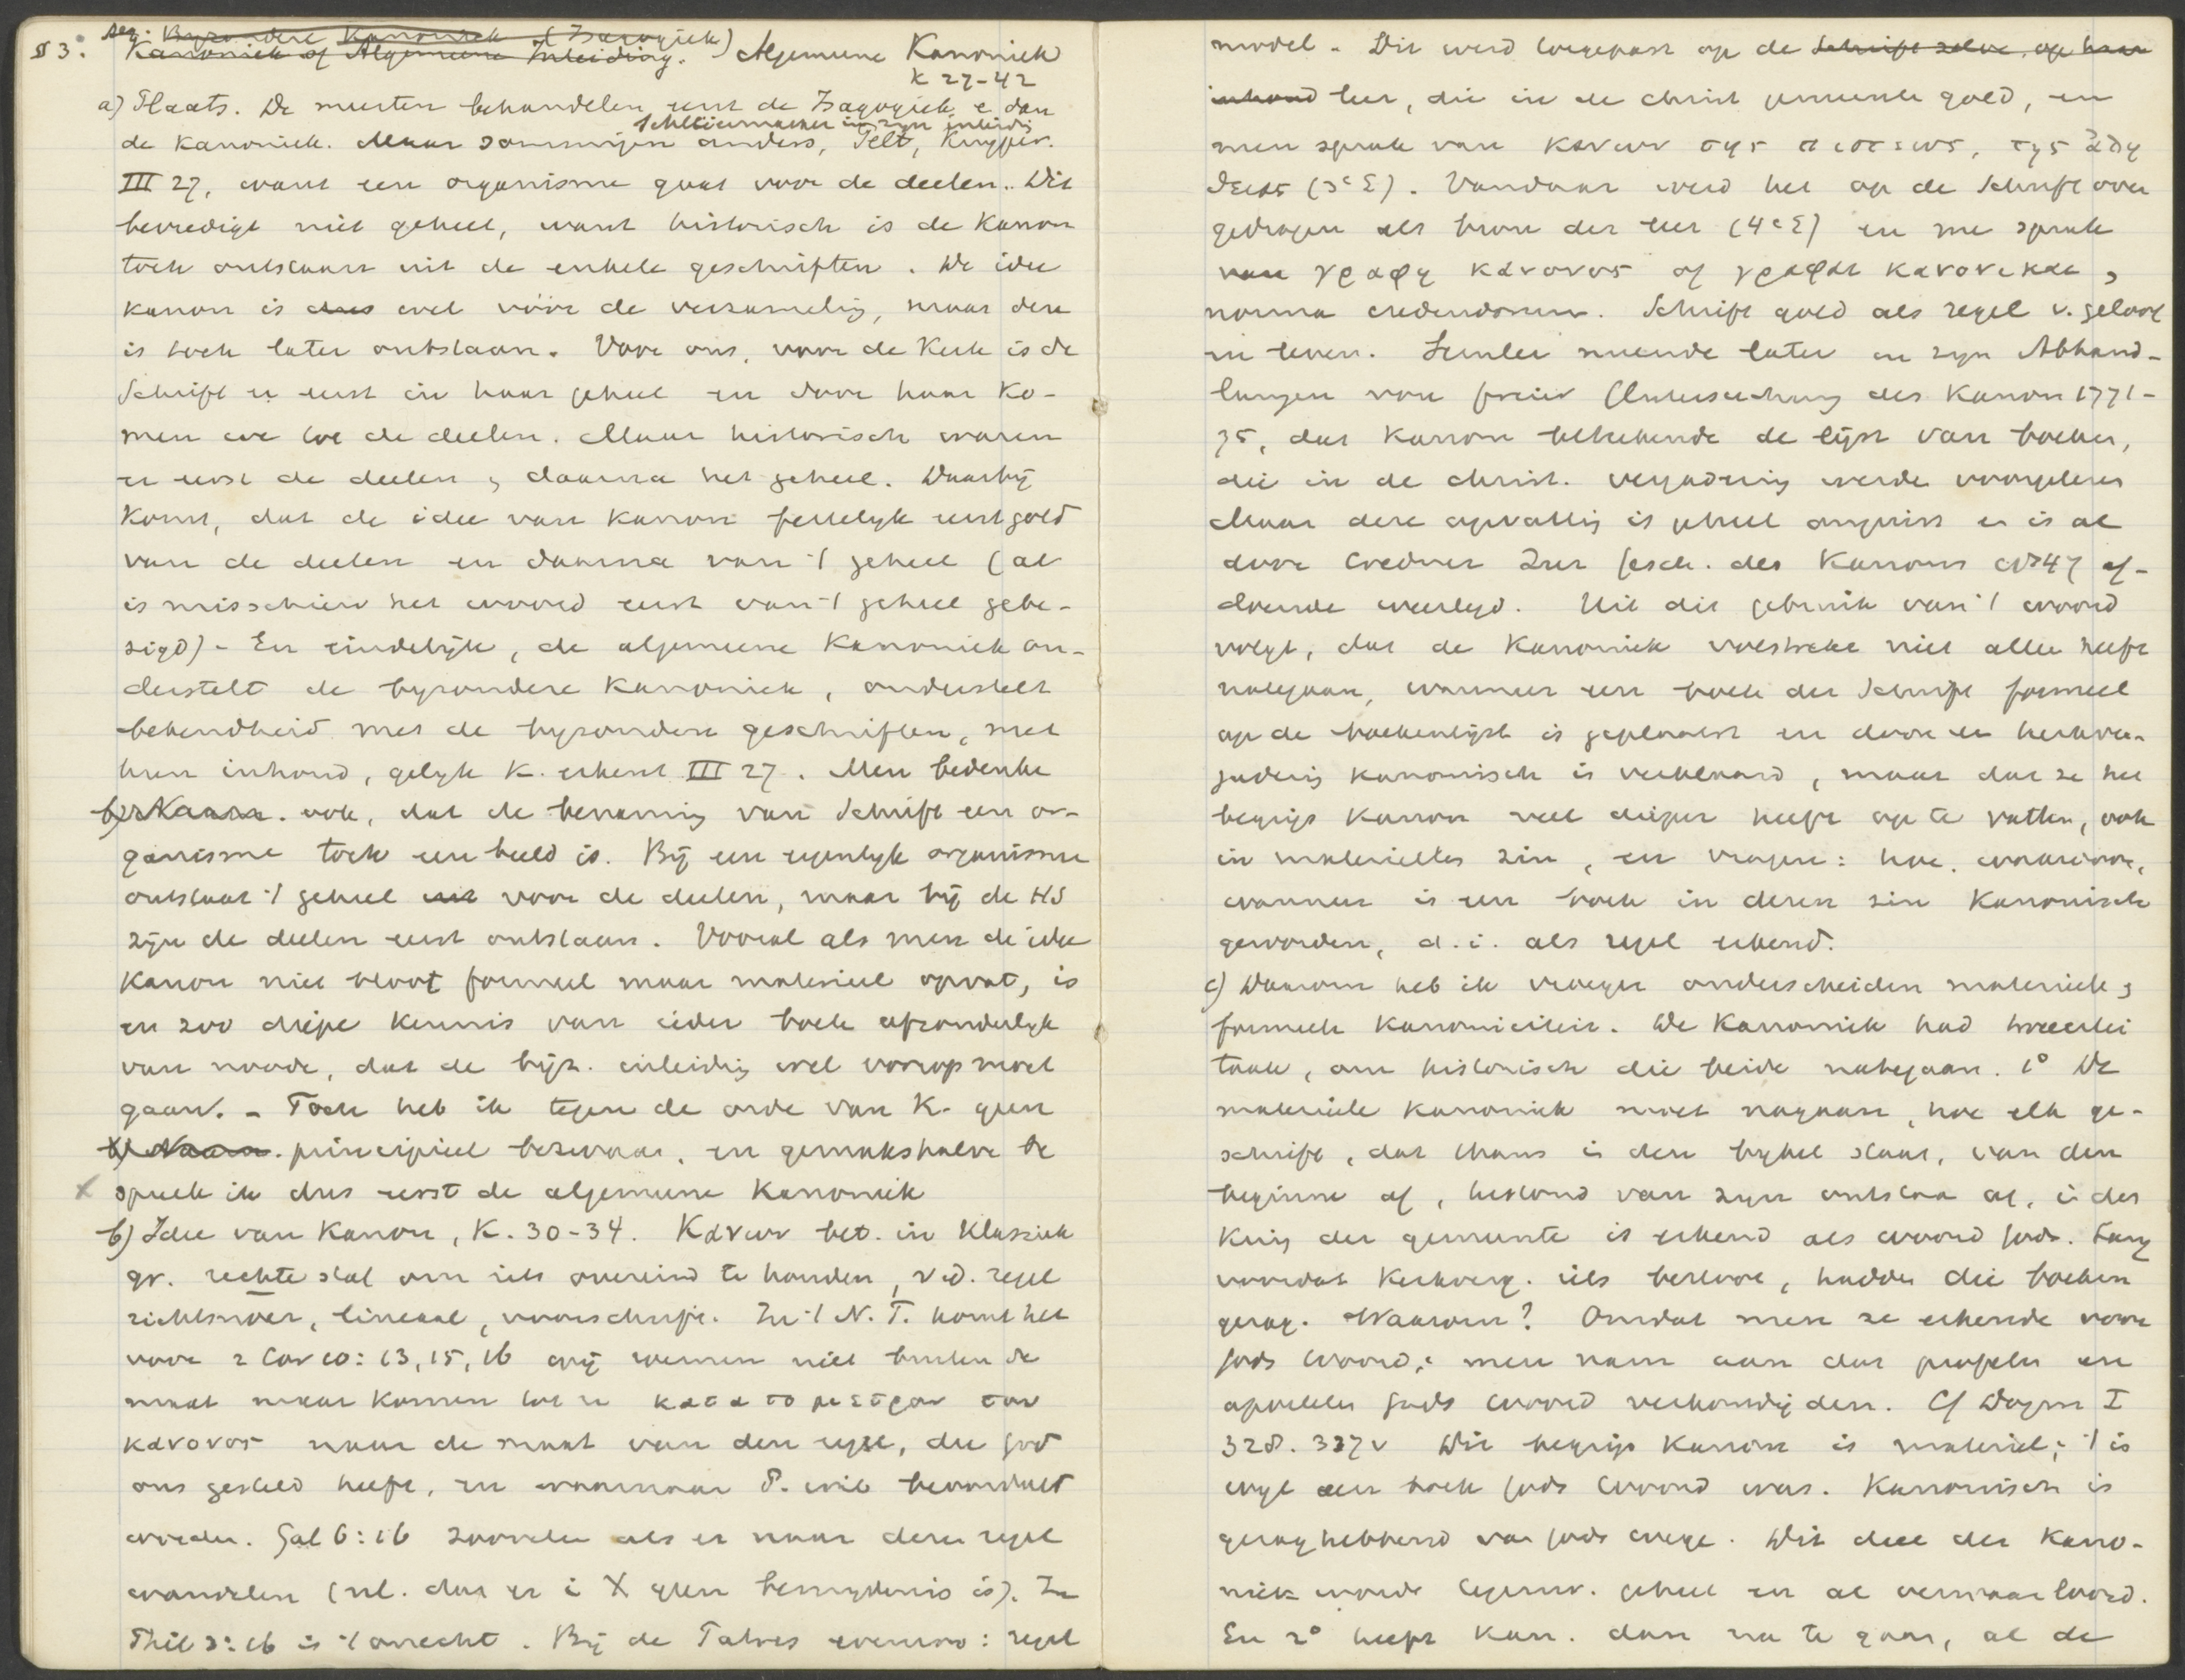 Bijzondere Kanoniek (Isagogiek)
§ 3. Kanoniek of Algemeene Inleiding. Algemeene Kanoniek
K 27-42
a) Plaats. We moesten behandelen eerst de Isagogiek e dan
Schleiermacher in zijn inleidg
de Kanoniek. Maar sommigen anders, Pelt, Kuyper.
III 27, want een organisme gaat voor de deelen. Dit
bevredigt niet geheel, want historisch is de Kanon
toch ontstaan uit de enkele geschriften. De idee
kanon is dus wel vóór de verzameling, maar deze
is toch later ontstaan. Voor ons, voor de Kerk is de
Schrift er eerst in haar geheel en door haar ko-
men we tot de deelen. Maar historisch waren
er eerst de deelen, daarna het geheel. Daarbij
komt, dat de idee van kanon feitelijk eerst gold
van de deelen en daarna van 't geheel (al
is misschien het woord eerst van 't geheel gebe-
zigd) - En eindelijk, de algemeene Kanoniek on-
derstelt de byzondere Kanoniek, onderstelt
bekendheid met de byzondere geschriften, met
hun inhoud, gelijk K. erkent III 27. Men bedenke
b) Naam. ook, dat de benaming van Schrift een or-
ganisme toch een beeld is. Bij een eigenlijk organisme
ontstaat 't geheel voor de deelen, maar bij de HS
zijn de deelen eerst ontstaan. Vooral als men de idee
Kanon niet bloot formeel maar materieel opvat, is
er zoo diepe kennis van ieder boek afzonderlyk
van noode, dat de bijz. inleidig wel voorop moet
gaan. - Toch heb ik tegen de orde van K. geen
b) Naam. principieel bezwaar, en gemakshalve be
x spreek ik dus eerst de algemeene Kanoniek
b) Idee van Kanon, K. 30-34. Κανων bet. in Klassiek
gr. rechte staf om iets overeind te houden, v.d. regel
richtsnoer, lineaal, voorschrift. In 't N.T. komt het
voor 2 Cor 10:13, 15, 16 wij roemen niet buiten de
maat maar komen tot u κατα το μετρον του
κανονος naar de maat van den regel, die God
ons gesteld heeft, en waarnaar P. wil beoordeelt
worden. Gal 6:16 zoovelen als er naar dezen regel
wandelen (nl. dat er i X geen besnydenis is). In
Phil 3:16 is 't onecht. Bij de Patres evenzoo: regel
model. Dit werd toegepast op de Schrift zelve, op haar
inhoud leer, die in de christ gemeente gold, en
men sprak van κανων της πιστεως, της ἀλη
θειας (3e E). Vandaar werd het op de Schrift over
gedragen als bron der leer (4e E) en me sprak
van γραφη κανονος of γραφαι κανονικαι,
norma credendorum. Schrift gold als regel v. geloof
en leven. Semler meende later in zijn Abhand-
lungen von freier Untersuchung des Kanon 1771-
75, dat Kanon beteekende de lijst van boeken,
die in de christ. vergadering werde voorgelezen
Maar deze opvatting is geheel onjuist en is al
door Credner Zur Gesch. des Kanons 1847 af-
doende weerlegd. Uit dit gebruik van 't woord
volgt, dat de Kanoniek volstrekt niet alleen heeft
nategaan, wanneer een boek der Schrift formeel
op de boekenlijst is geplaatst en door een kerkver-
gadering kanonisch is verklaard, maar dat ze het
begrip kanon veel dieper heeft op te vatten, ook
in materieelen zin, en vragen: hoe, waardoor,
wanneer is een boek in dezen zin Kanonisch
geworden, d.i. als regel erkend.
c) Daarom heb ik vroeger onderscheiden materieele,
formeele Kanoniciteit. De Kanoniek had tweeërlei
taak, om historisch die beide nategaan. 1° De
materieele Kanoniek moet nagaan, hoe elk ge-
schrift, dat thans in den bijbel staat, van den
beginne af, terstond van zijn ontstaan af, i den
Kring der gemeente is erkend als woord Gods. Lang
voordat Kerkverg. iets besloot, hadden die boeken
gezag. Waarom? Omdat men ze erkende voor
Gods woord; men nam aan dat profeten en
apostelen Gods woord verkondigden. Cf Dogm I
328. 337v Dit begrip kanon is materieel; 't is
wijl een boek Gods woord was. Kanonisch is
gezaghebbend van Gods wege. Dit deel der Kano-
niek wordt tegenw. geheel en al verwaarloosd.
En 2° heeft Kan. dan na te gaan, al de